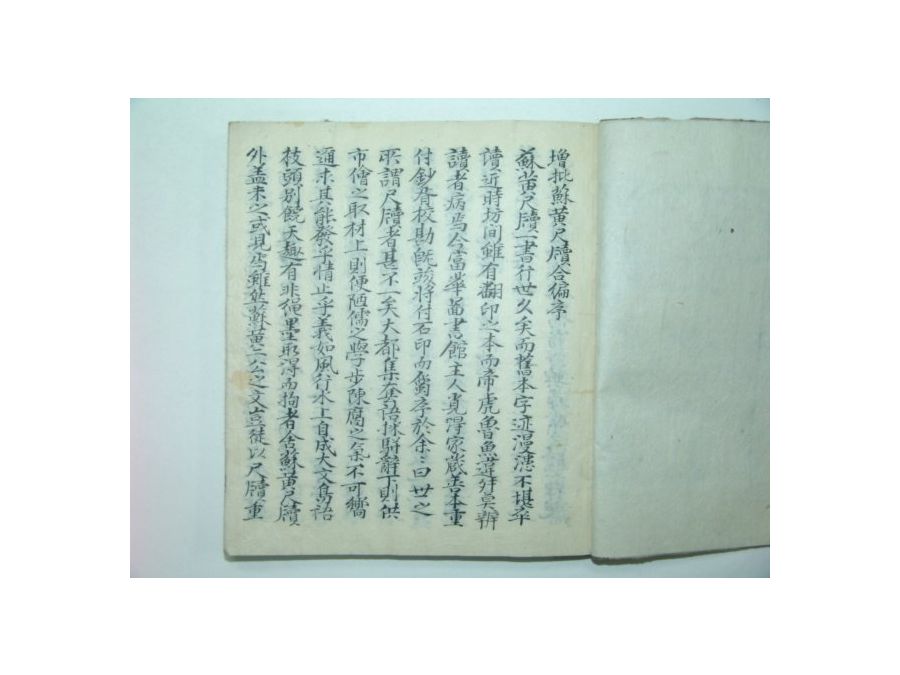 增批蘇黄尺牘合編序
蘇黄尺牘一書行世久矣而舊本字迹漫漶不堪卒
讀近時坊间雖有翻印之本而帝虎魯魚舛莫辨
讀者病焉今富華圖書館主人覓得家蔵善本重
付鈔胥校勘既竣将付石印而徵序於余三曰世之
所謂尺牘者甚不一矣大都集套語抹駢辭下則供
市儈之取材上則便陋儒之學步陳腐之氣不可嚮
通求其能發乎情止乎義如風行水上自成大文鳥語
枝頭别饒天趣有非绳墨所得而拘者舍蘇黄尺牘
外盖未之或見焉雖然蘇黄二公之文豈徒以尺牘重